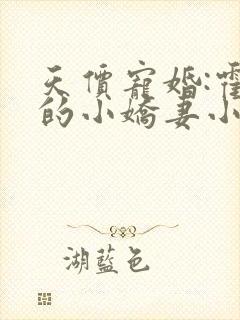 天價寵婚:霍
的小嬌妻小
湖藍色